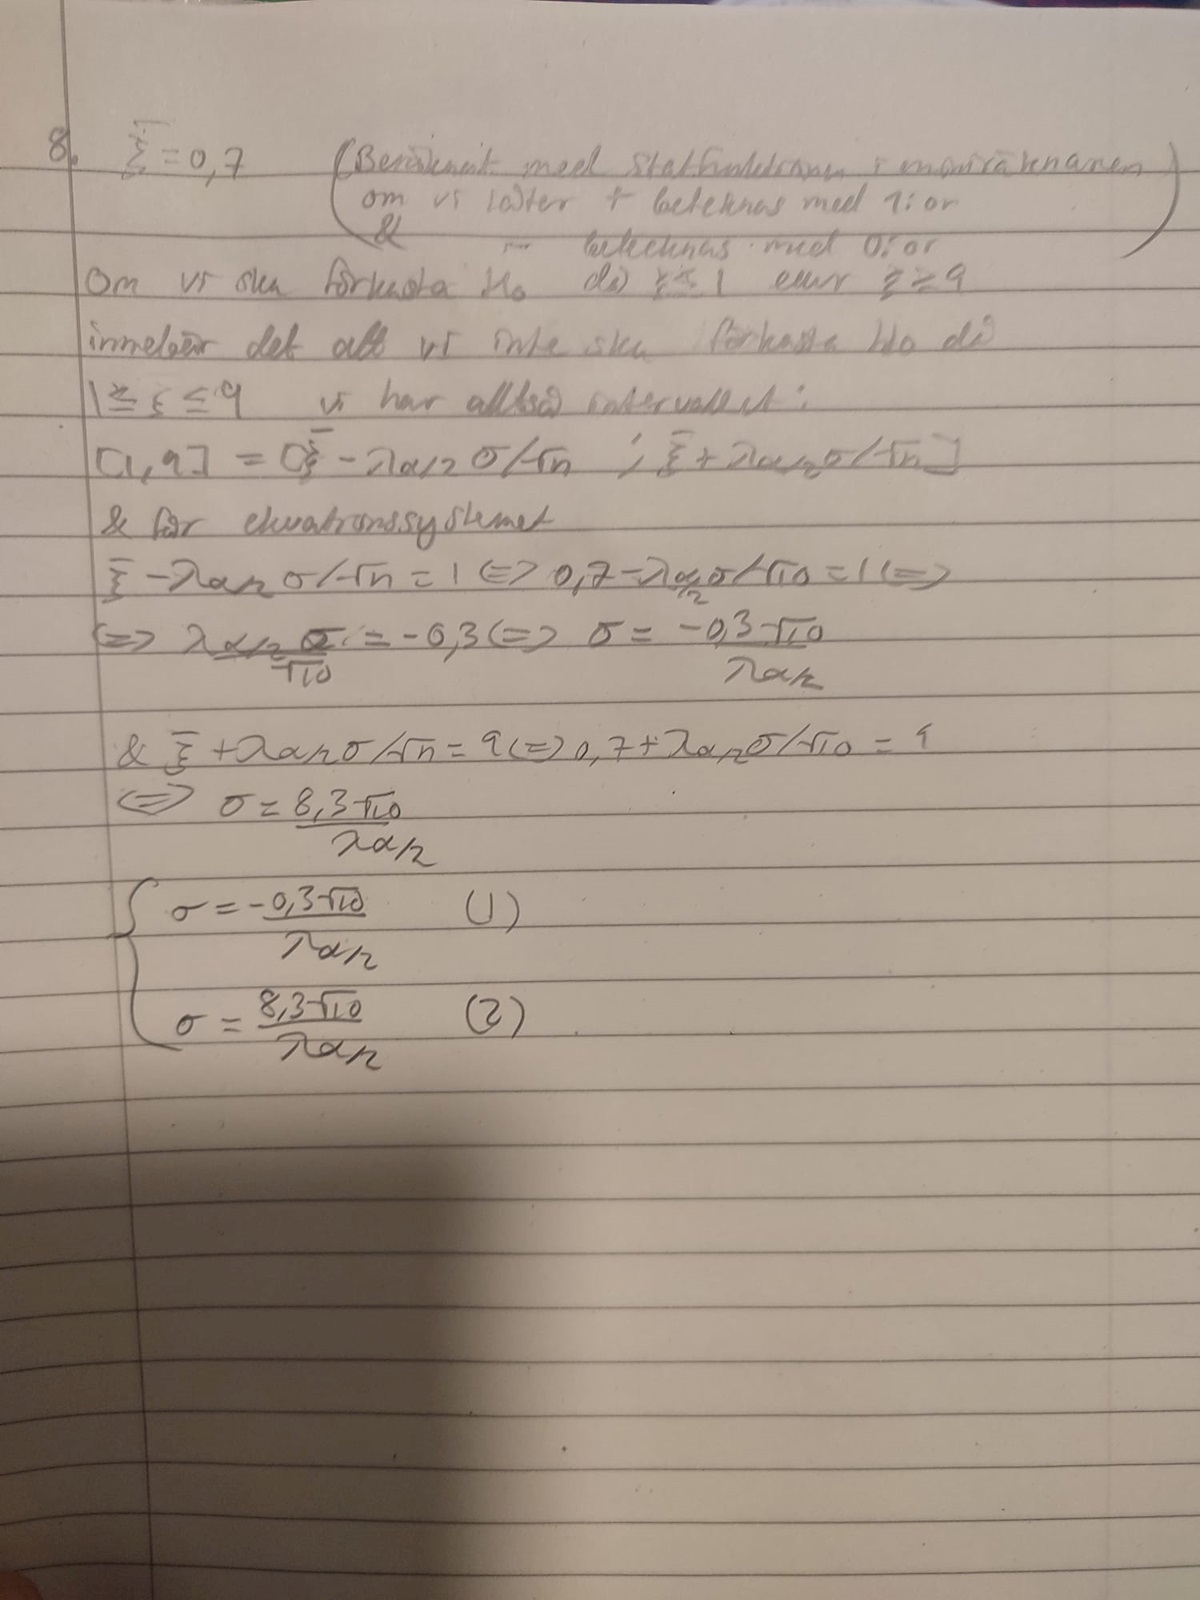 8. ξ̄ = 0,7 (Beräknat med statfunktionen i miniräknaren
om vi låter + betecknas med 1:or
& — betecknas med 0:or)
Om vi ska förkasta H₀ då ξ ≤ 1 eller ξ ≥ 9
innebär det att vi inte ska förkasta H₀ då
1 ≥ ξ ≤ 9 vi har alltså intervallet:
[1,9] = [ξ̄ - λα/2 σ/√n ; ξ̄ + λα/2 σ/√n]
& får ekvationssystemet
ξ̄ - λα/2 σ/√n = 1 <=> 0,7 - λα/2 σ/√10 = 1 <=>
<=> λα/2 σ/√10 = -0,3 <=> σ = -0,3√10/λα/2
& ξ̄ + λα/2 σ/√n = 9 <=> 0,7 + λα/2 σ/√10 = 9
<=> σ = 8,3√10/λα/2
{ σ = -0,3√10/λα/2 (1)
σ = 8,3√10/λα/2 (2)